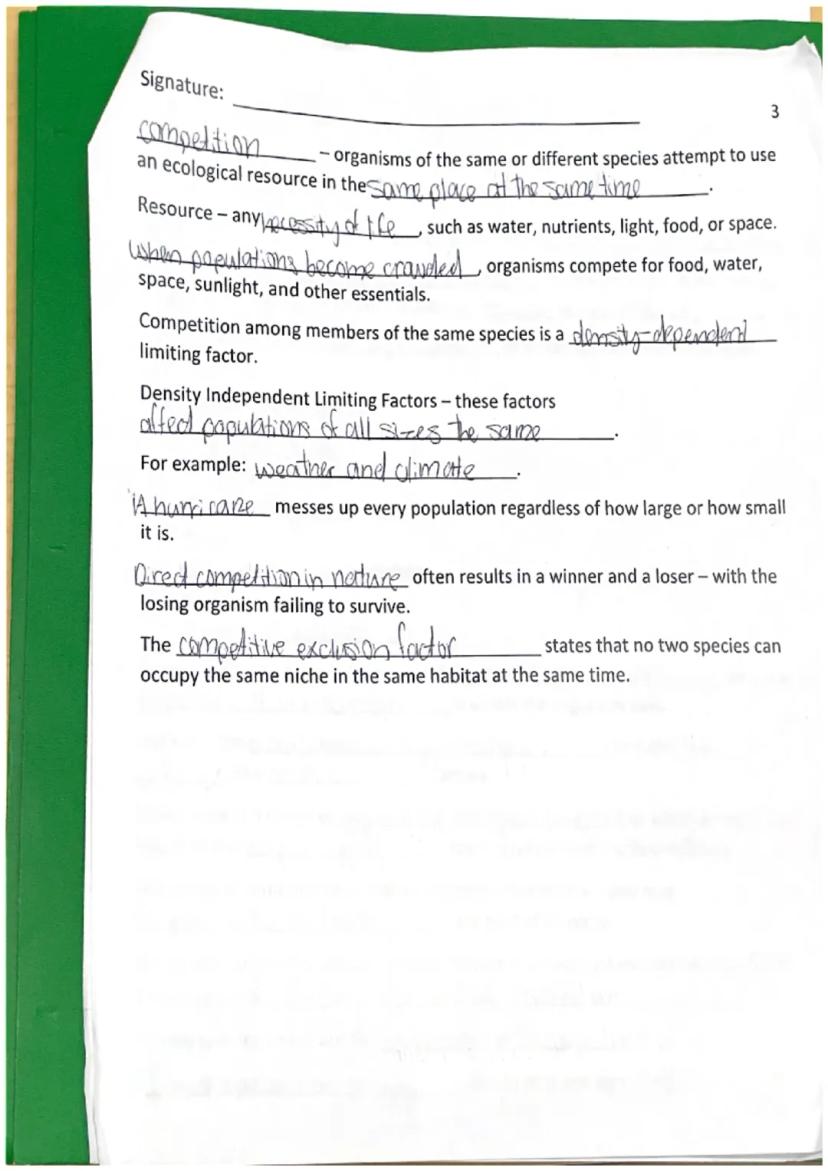 Signature:
3
competition – organisms of the same or different species attempt to use
an ecological resource in the same place at the same time.
Resource – any necessity of life, such as water, nutrients, light, food, or space.
When populations become crowded, organisms compete for food, water,
space, sunlight, and other essentials.
Competition among members of the same species is a density-dependent
limiting factor.
Density Independent Limiting Factors – these factors
affect populations of all sizes the same.
For example: weather and climate.
A hurricane messes up every population regardless of how large or how small
it is.
Direct competition in nature often results in a winner and a loser – with the
losing organism failing to survive.
The competitive exclusion factor states that no two species can
occupy the same niche in the same habitat at the same time.